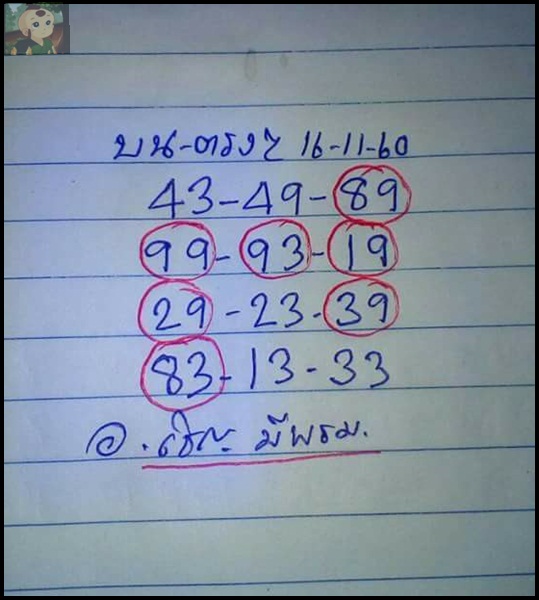 บน-ตรงๆ 16-11-60
43-49-89
99-93-19
29-23-39
83-13-33
อ. เชิญ มีพรม.